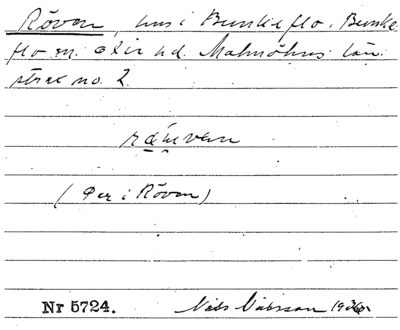 Röven, hus i Bunkeflo. Bunke-
flo sn. Oxie hd. Malmöhus län.
strac no. 2.
(Per i Röven)
Nr 5724. Nils Nilsson 1936.